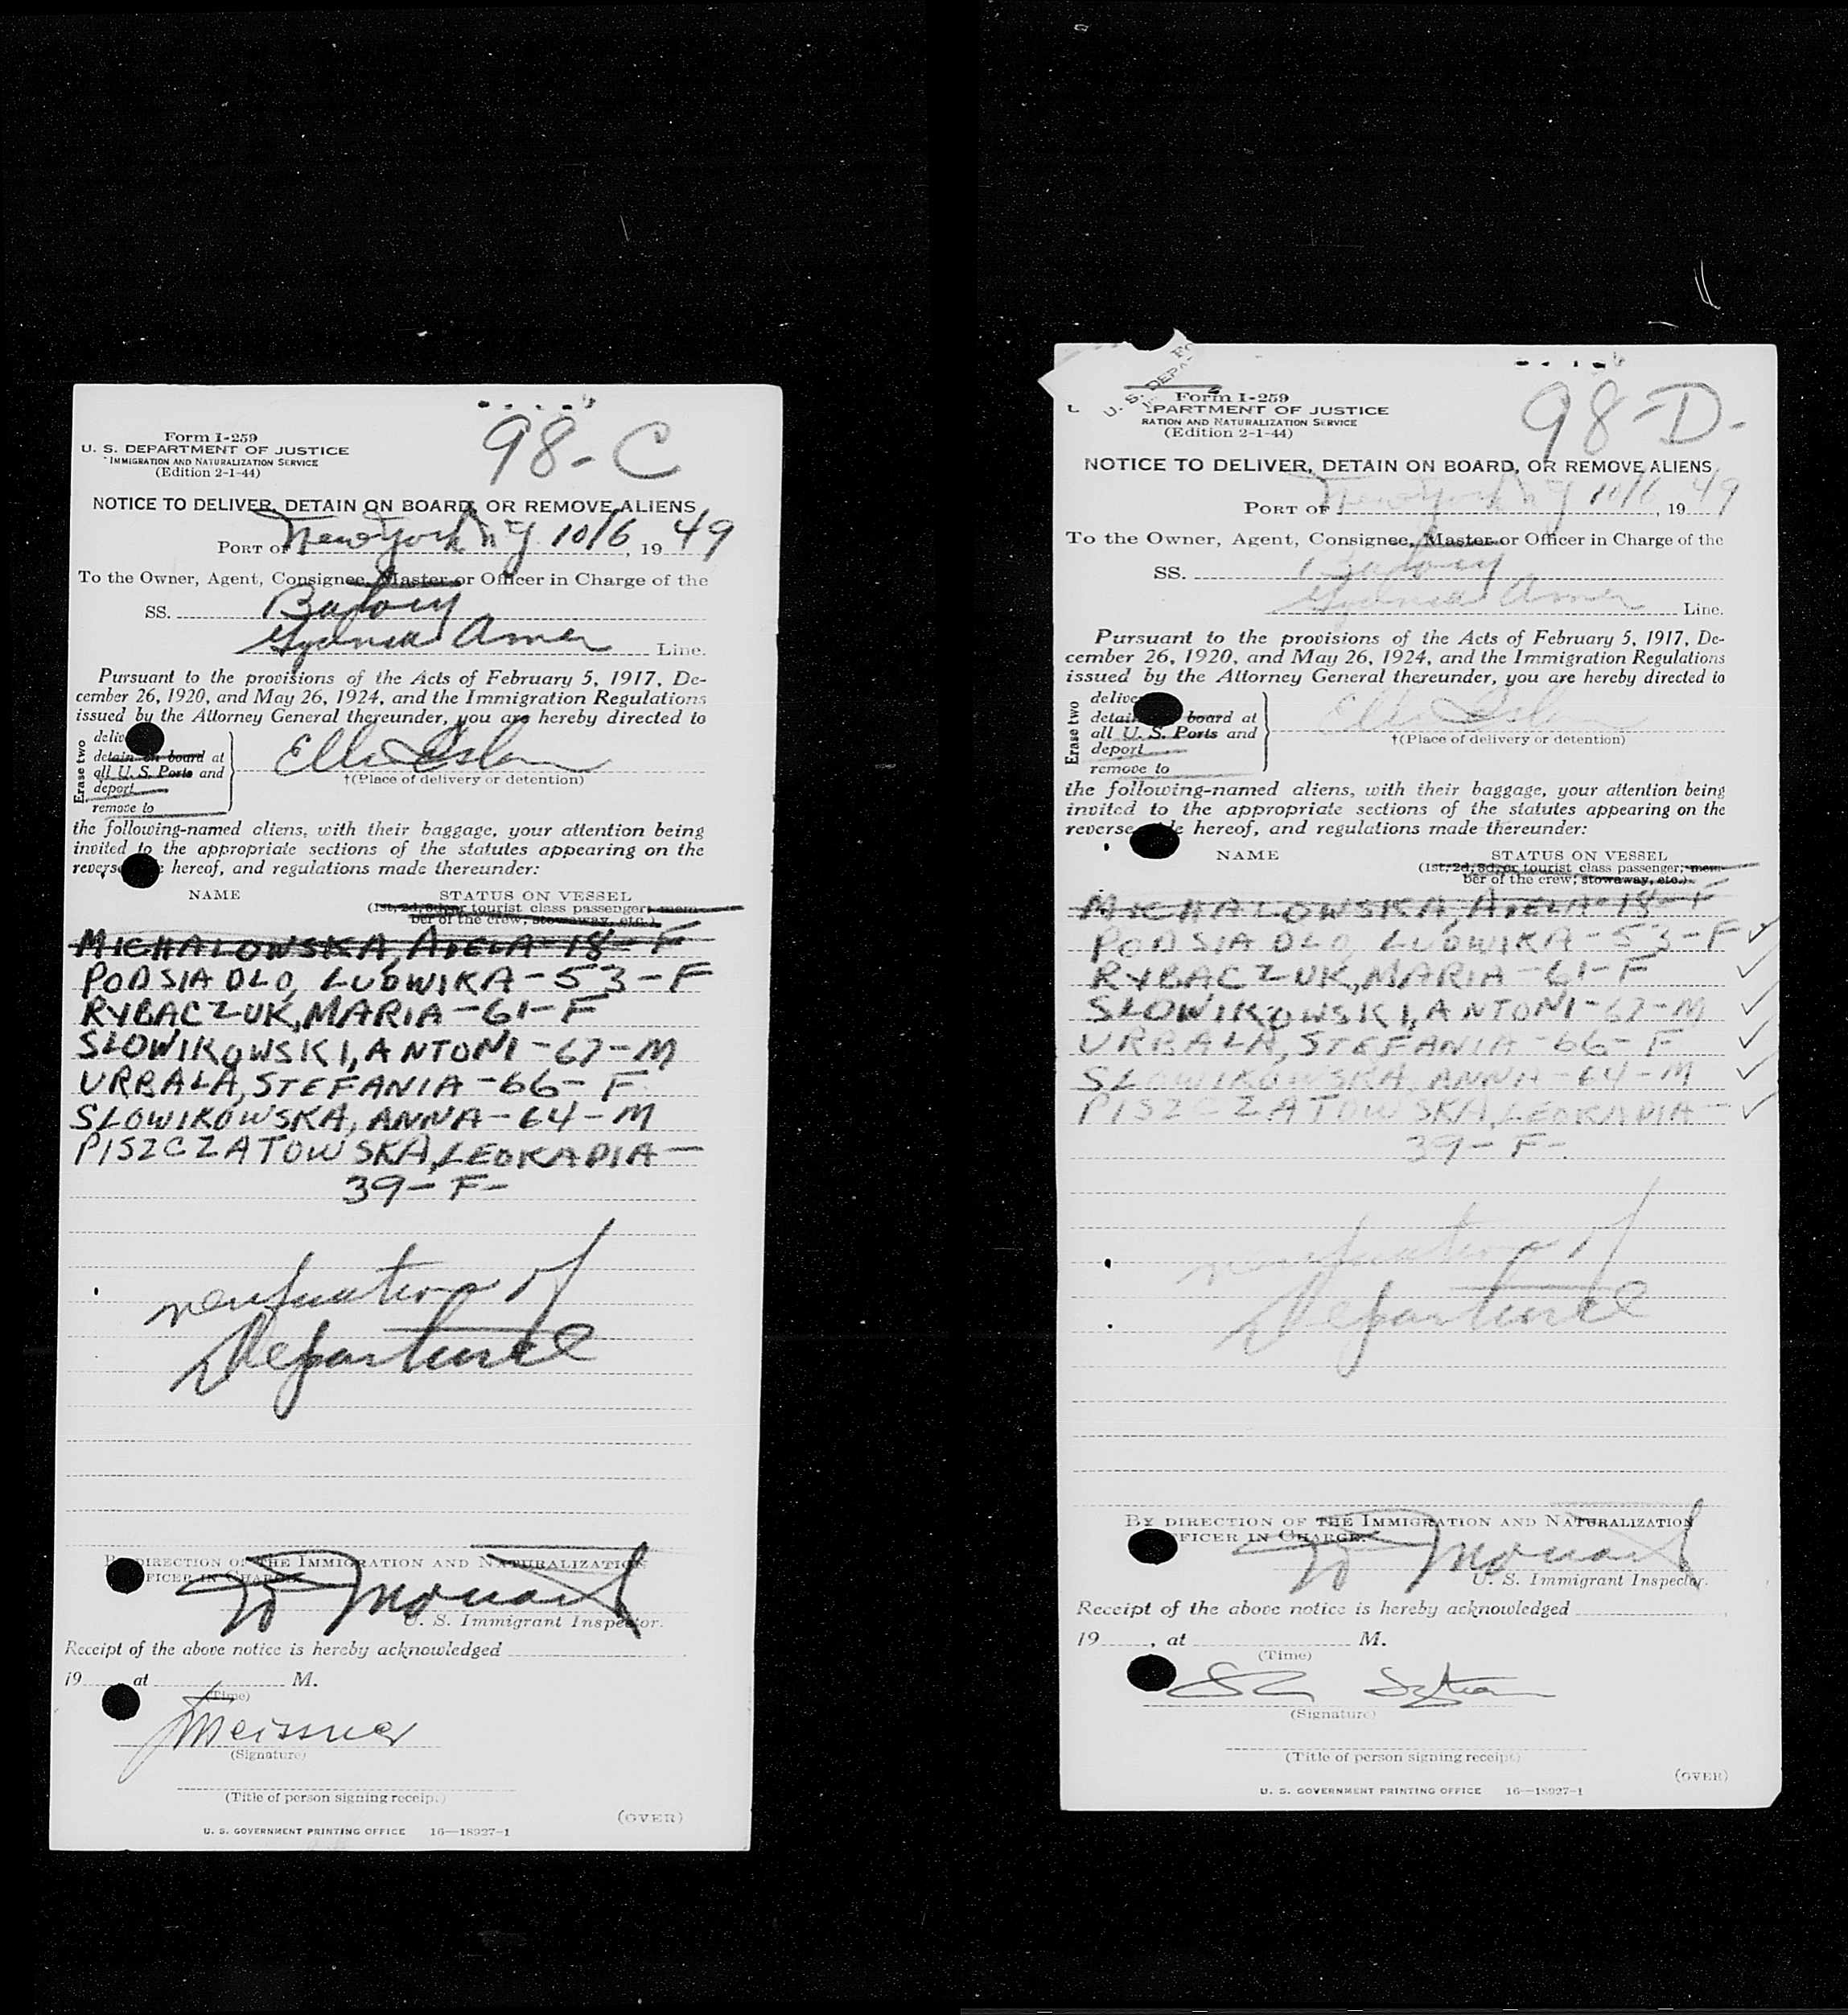 Form I-259
U. S. DEPARTMENT OF JUSTICE
IMMIGRATION AND NATURALIZATION SERVICE
(Edition 2-1-44)
98-C
NOTICE TO DELIVER, DETAIN ON BOARD, OR REMOVE ALIENS
PORT OF New York NY 10/6, 19 49
To the Owner, Agent, Consignee, Master or Officer in Charge of the
SS. Batory
Gydnia Amer Line.
Pursuant to the provisions of the Acts of February 5, 1917, De-
cember 26, 1920, and May 26, 1924, and the Immigration Regulations
issued by the Attorney General thereunder, you are hereby directed to
Erase two
deliv
detain on board at
all U. S. Ports and
deport
remove to
Ellis Island
†(Place of delivery or detention)
the following-named aliens, with their baggage, your attention being
invited to the appropriate sections of the statutes appearing on the
revers e hereof, and regulations made thereunder:
NAME STATUS ON VESSEL
(1st, 2d, 3d, or tourist class passenger; mem-
ber of the crew; stowaway, etc.)
MICHALOWSKA, ADELA-18-F
PODSIADLO, LUDWIKA-53-F
RYBACZUK, MARIA-61-F
SLOWIKOWSKI, ANTONI-67-M
URBALA, STEFANIA-66-F
SLOWIKOWSKA, ANNA-64-M
PISZCZATOWSKA, LEOKADIA-
39-F-
verification of
Departure
BY DIRECTION OF THE IMMIGRATION AND NATURALIZATION
FFICER IN CHARGE.
U. S. Immigrant Inspector.
Receipt of the above notice is hereby acknowledged
19 at M.
(Time)
Meissner
(Signature)
(Title of person signing receipt.)
(OVER)
U. S. GOVERNMENT PRINTING OFFICE 16—18927-1
Form I-259
EPARTMENT OF JUSTICE
RATION AND NATURALIZATION SERVICE
(Edition 2-1-44)
U. S. DEPA
98-D-
NOTICE TO DELIVER, DETAIN ON BOARD, OR REMOVE ALIENS
PORT OF New York NY 10/6, 19 49
To the Owner, Agent, Consignee, Master or Officer in Charge of the
SS. Batory
Gydnia Amer Line.
Pursuant to the provisions of the Acts of February 5, 1917, De-
cember 26, 1920, and May 26, 1924, and the Immigration Regulations
issued by the Attorney General thereunder, you are hereby directed to
Erase two
delive
detain board at
all U. S. Ports and
deport
remove to
Ellis Island
†(Place of delivery or detention)
the following-named aliens, with their baggage, your attention being
invited to the appropriate sections of the statutes appearing on the
reverse e hereof, and regulations made thereunder:
NAME STATUS ON VESSEL
(1st, 2d, 3d, or tourist class passenger; mem-
ber of the crew; stowaway, etc.)
MICHALOWSKA, ADELA-18-F
PODSIADLO, LUDWIKA-53-F ✓
RYBACZUK, MARIA-61-F ✓
SLOWIKOWSKI, ANTONI-67-M ✓
URBALA, STEFANIA-66-F ✓
SLOWIKOWSKA, ANNA-64-M ✓
PISZCZATOWSKA, LEOKADIA- ✓
39-F-
verification of
Departure
BY DIRECTION OF THE IMMIGRATION AND NATURALIZATION
FFICER IN CHARGE.
U. S. Immigrant Inspector.
Receipt of the above notice is hereby acknowledged
19 , at M.
(Time)
(Signature)
(Title of person signing receipt.)
(OVER)
U. S. GOVERNMENT PRINTING OFFICE 16—18927-1